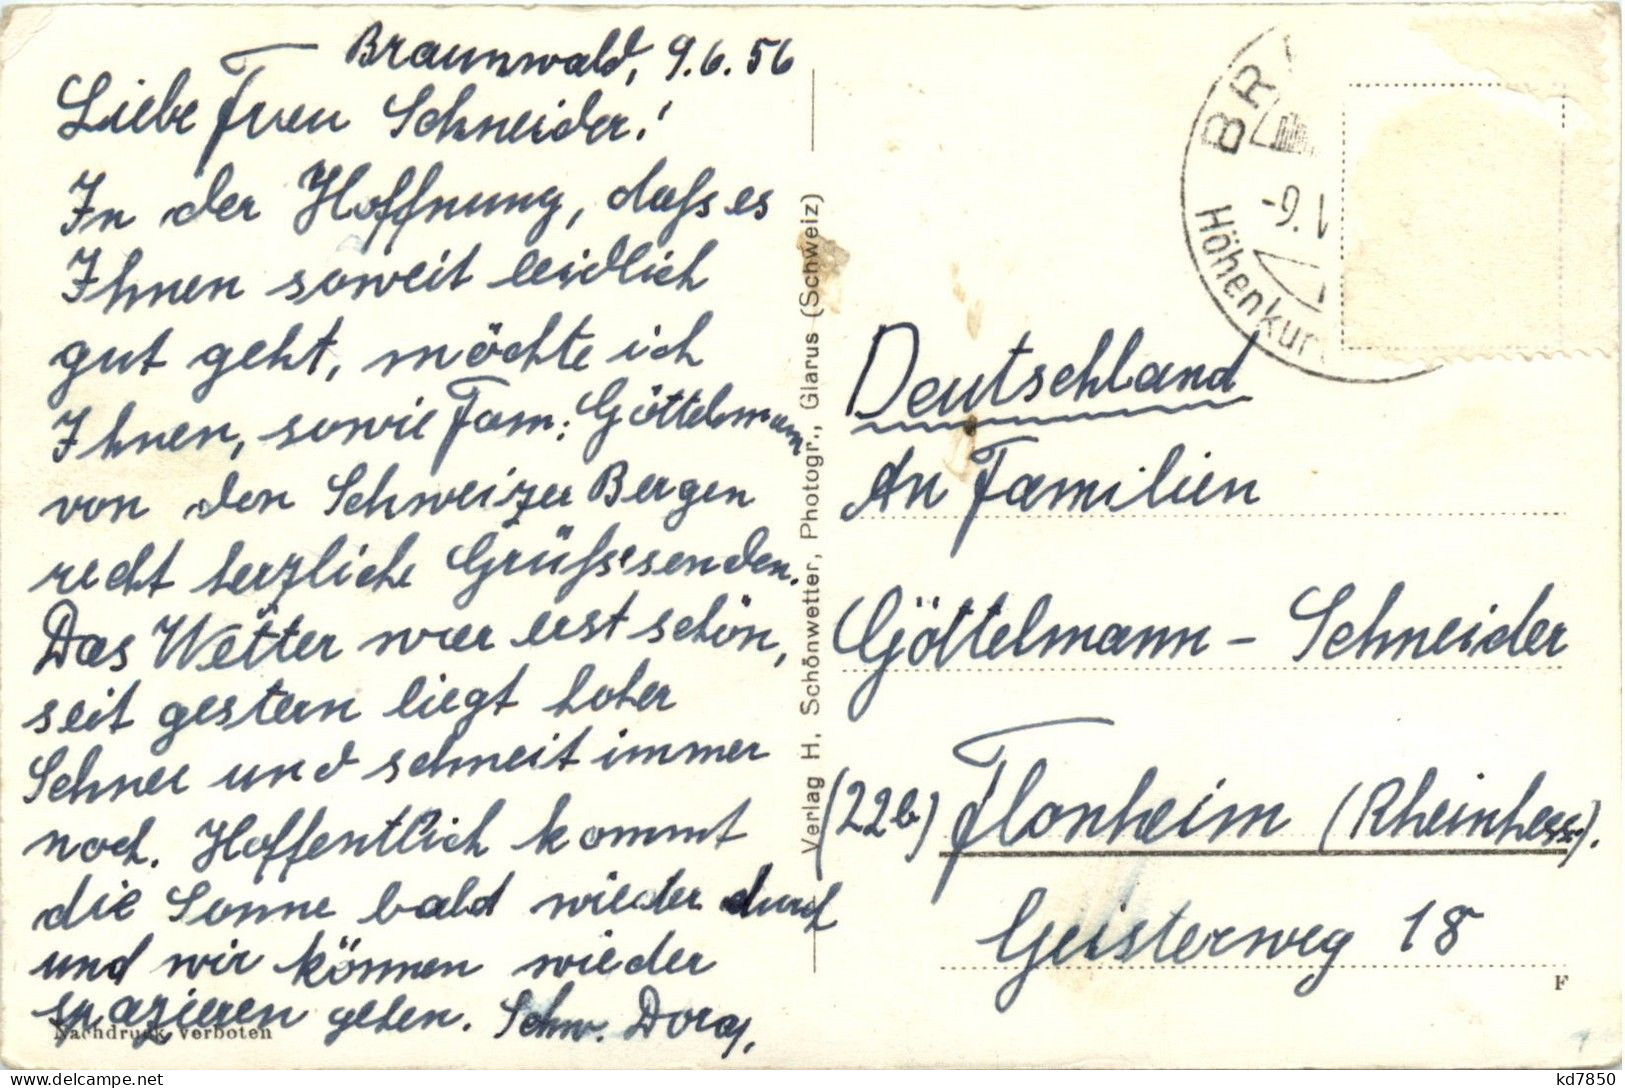 Braunwald, 9.6.56
Liebe Frau Schneider!
In der Hoffnung, dass es
Ihnen soweit leidlich
gut geht, möchte ich
Ihnen, sowie Fam: Göttelmann
von den Schweizer Bergen
recht herzliche Grüsse senden.
Das Wetter war erst schön,
seit gestern liegt hoher
Schnee und schneit immer
noch. Hoffentlich kommt
die Sonne bald wieder durch
und wir können wieder
spazieren gehen. Schw. Dora,
Nachdruck verboten
Verlag H. Schönwetter, Photogr., Glarus (Schweiz)
BRA
-9. V
Höhenkur
Deutschland
An Familien
Göttelmann - Schneider
(22b) Flonheim (Rheinhess).
Geisterweg 18
F
kd7850